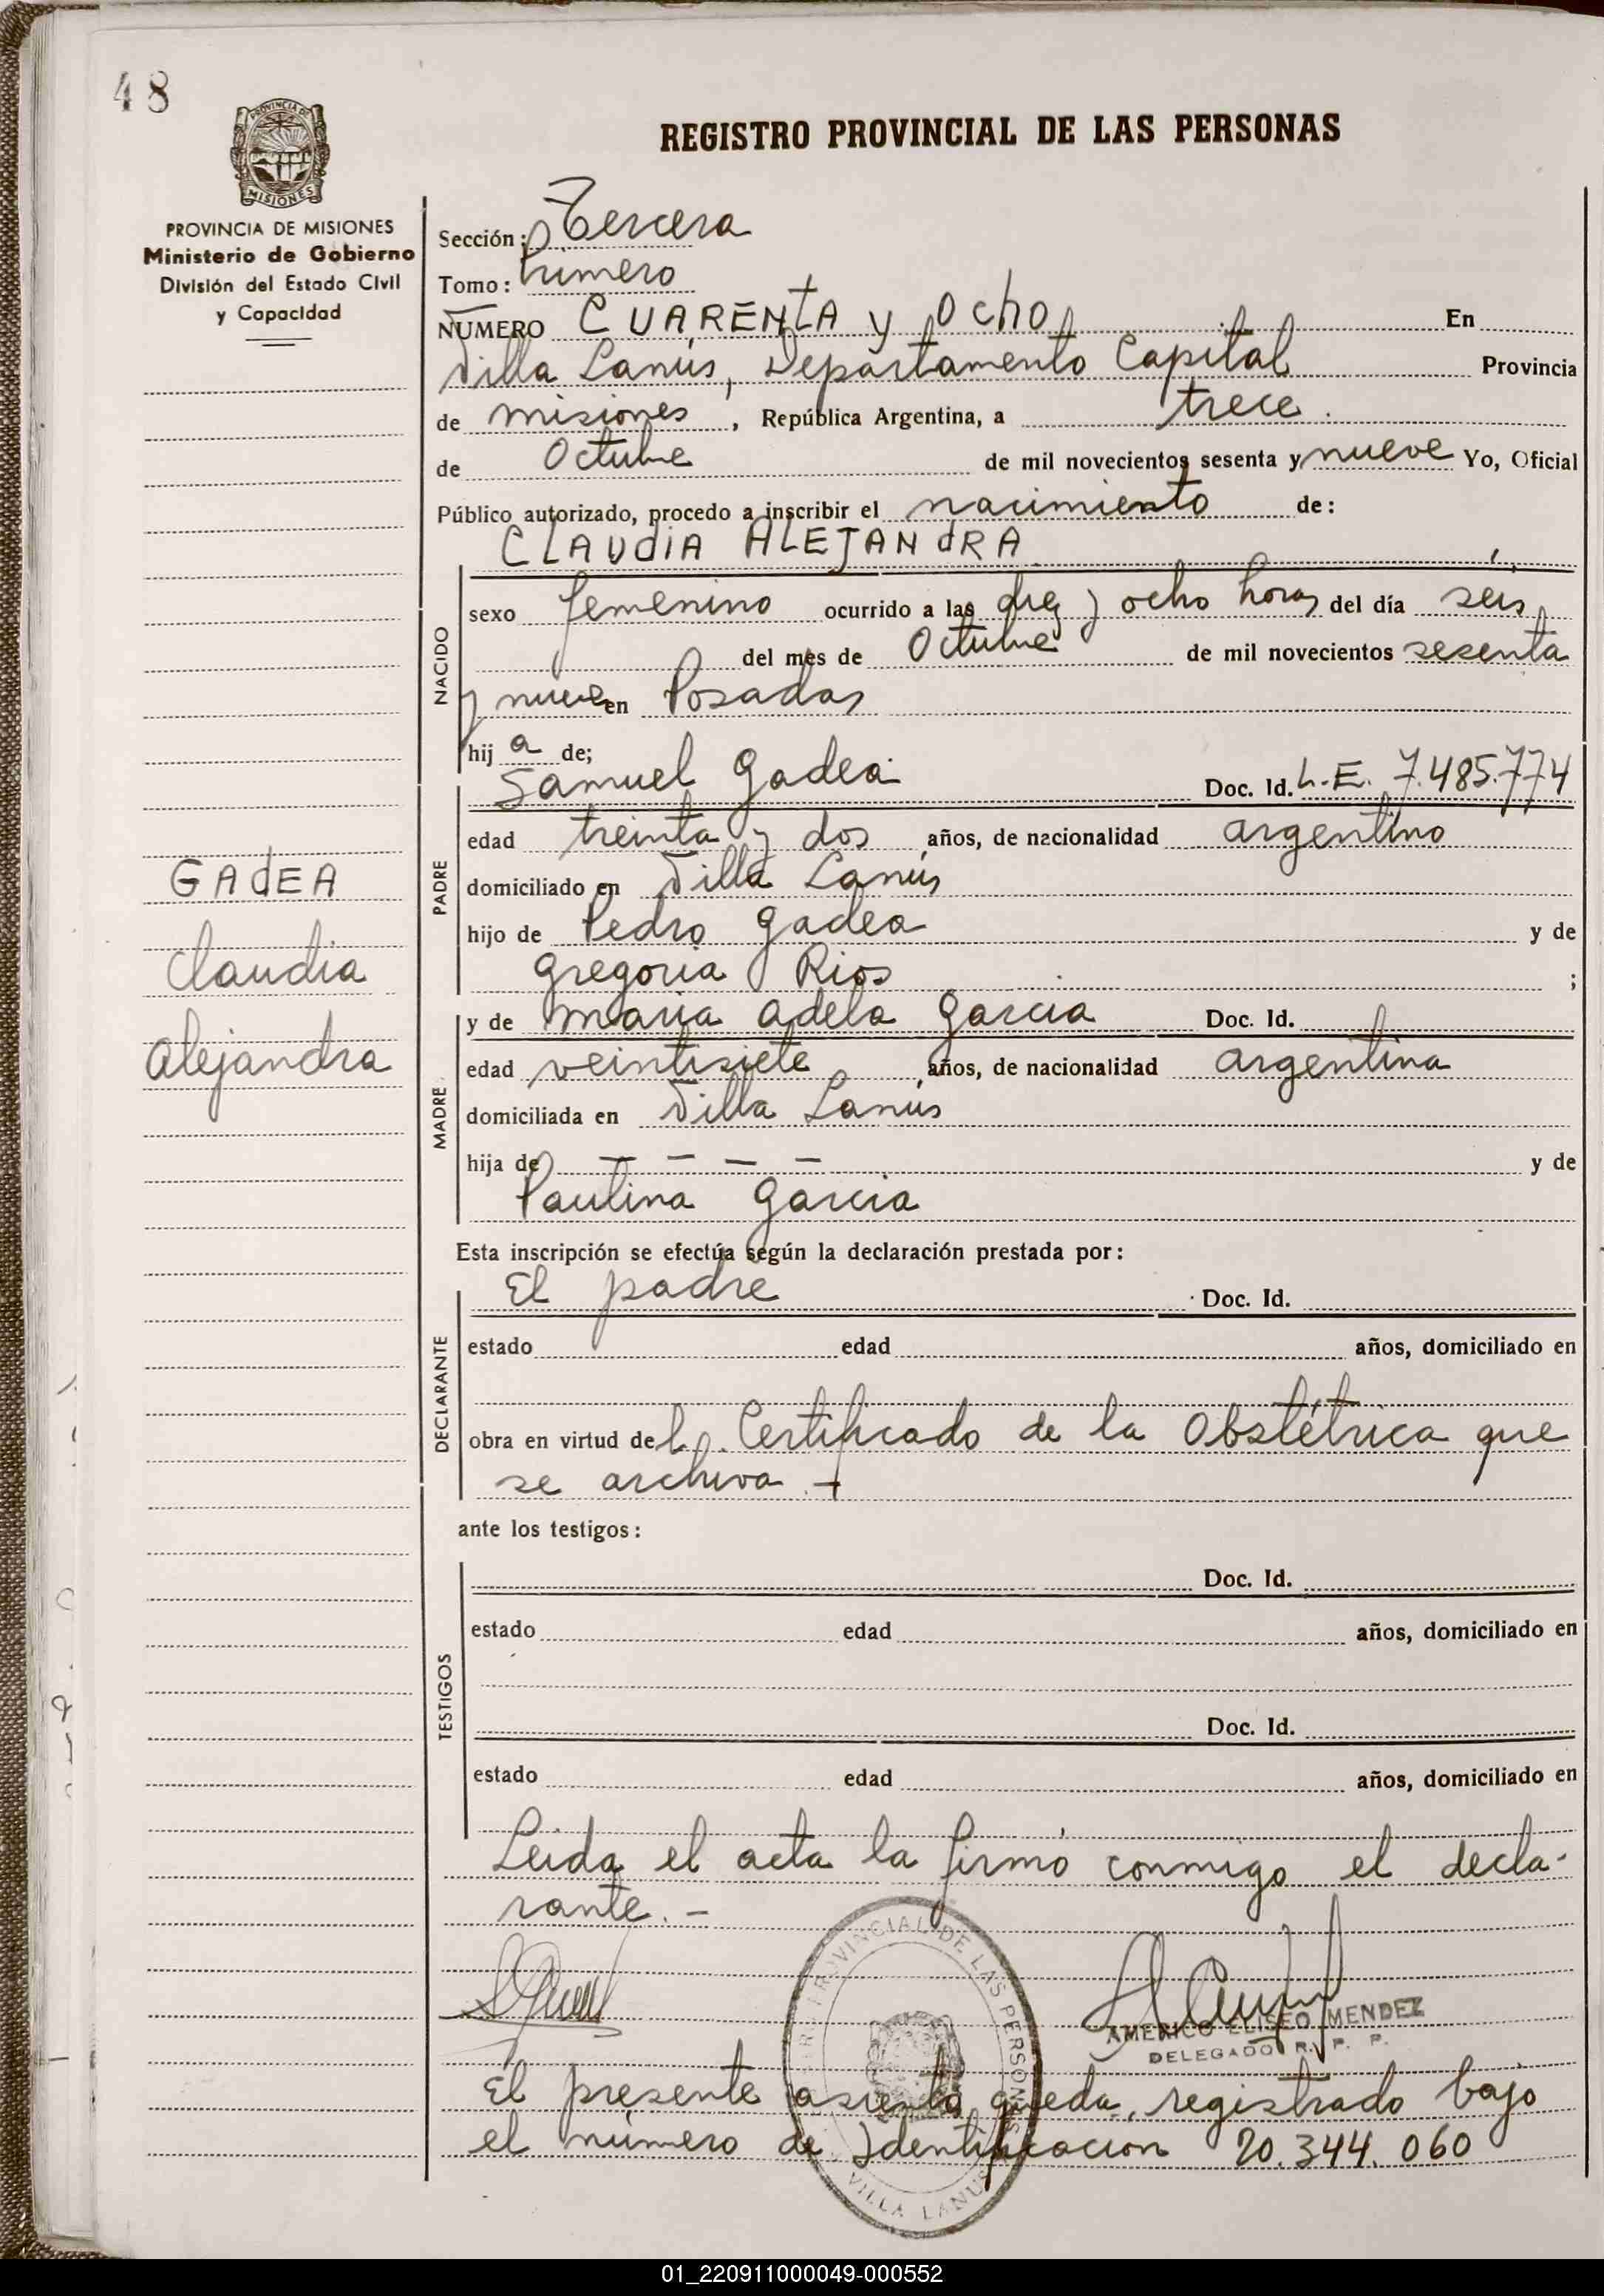 48
PROVINCIA DE MISIONES
REGISTRO PROVINCIAL DE LAS PERSONAS
PROVINCIA DE MISIONES
Ministerio de Gobierno
División del Estado Civil
y Capacidad
Sección: Tercera
Tomo: Primero
NUMERO CUARENTA y OCHO En
Villa Lanús, Departamento Capital Provincia
de misiones, República Argentina, a trece
de Octubre de mil novecientos sesenta y nueve Yo, Oficial
Público autorizado, procedo a inscribir el nacimiento de:
CLAUDIA ALEJANDRA
NACIDO
sexo femenino ocurrido a las diez y ocho horas del día seis
del mes de Octubre de mil novecientos sesenta
y nueve en Posadas
hij a de;
PADRE
Samuel Gadea Doc. Id. L.E. 7.485.774
edad treinta y dos años, de nacionalidad argentino
domiciliado en Villa Lanús
hijo de Pedro Gadea y de
Gregoria Rios ;
GADEA
Claudia
Alejandra
MADRE
y de maria adela Garcia Doc. Id.
edad veintisiete años, de nacionalidad argentina
domiciliada en Villa Lanús
hija de — — — — y de
Paulina Garcia
Esta inscripción se efectúa según la declaración prestada por:
DECLARANTE
El padre Doc. Id.
estado edad años, domiciliado en
obra en virtud del Certificado de la Obstétrica que
se archiva.-
ante los testigos:
TESTIGOS
Doc. Id.
estado edad años, domiciliado en
Doc. Id.
estado edad años, domiciliado en
Leida el acta la firmó conmigo el decla-
rante.-
PROVINCIAL DE LAS PERSONAS
VILLA LANUS
AMERICO ELISEO MENDEZ
DELEGADO R. P. P.
El presente asiento queda registrado bajo
el número de Identificacion 20.344.060
01_220911000049-000552